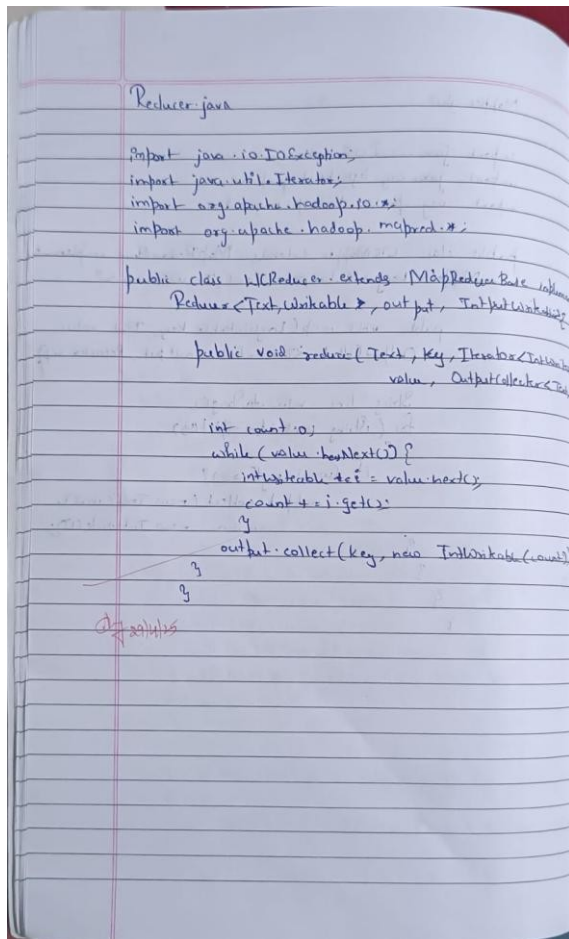 Reducer.java
import java.io.IOException;
import java.util.Iterator;
import org.apache.hadoop.io.*;
import org.apache.hadoop.mapred.*;
public class WCReducer extends MapReduceBase
Reducer<Text, Writable >, output,
public void reduce(Text, Key, Iterator<
value, OutputCollector<
int count 0;
while (value.hasNext()) {
i = value.next();
count + = i.get();
}
output.collect(key, new IntWritable(count)
}
}
29/4/25